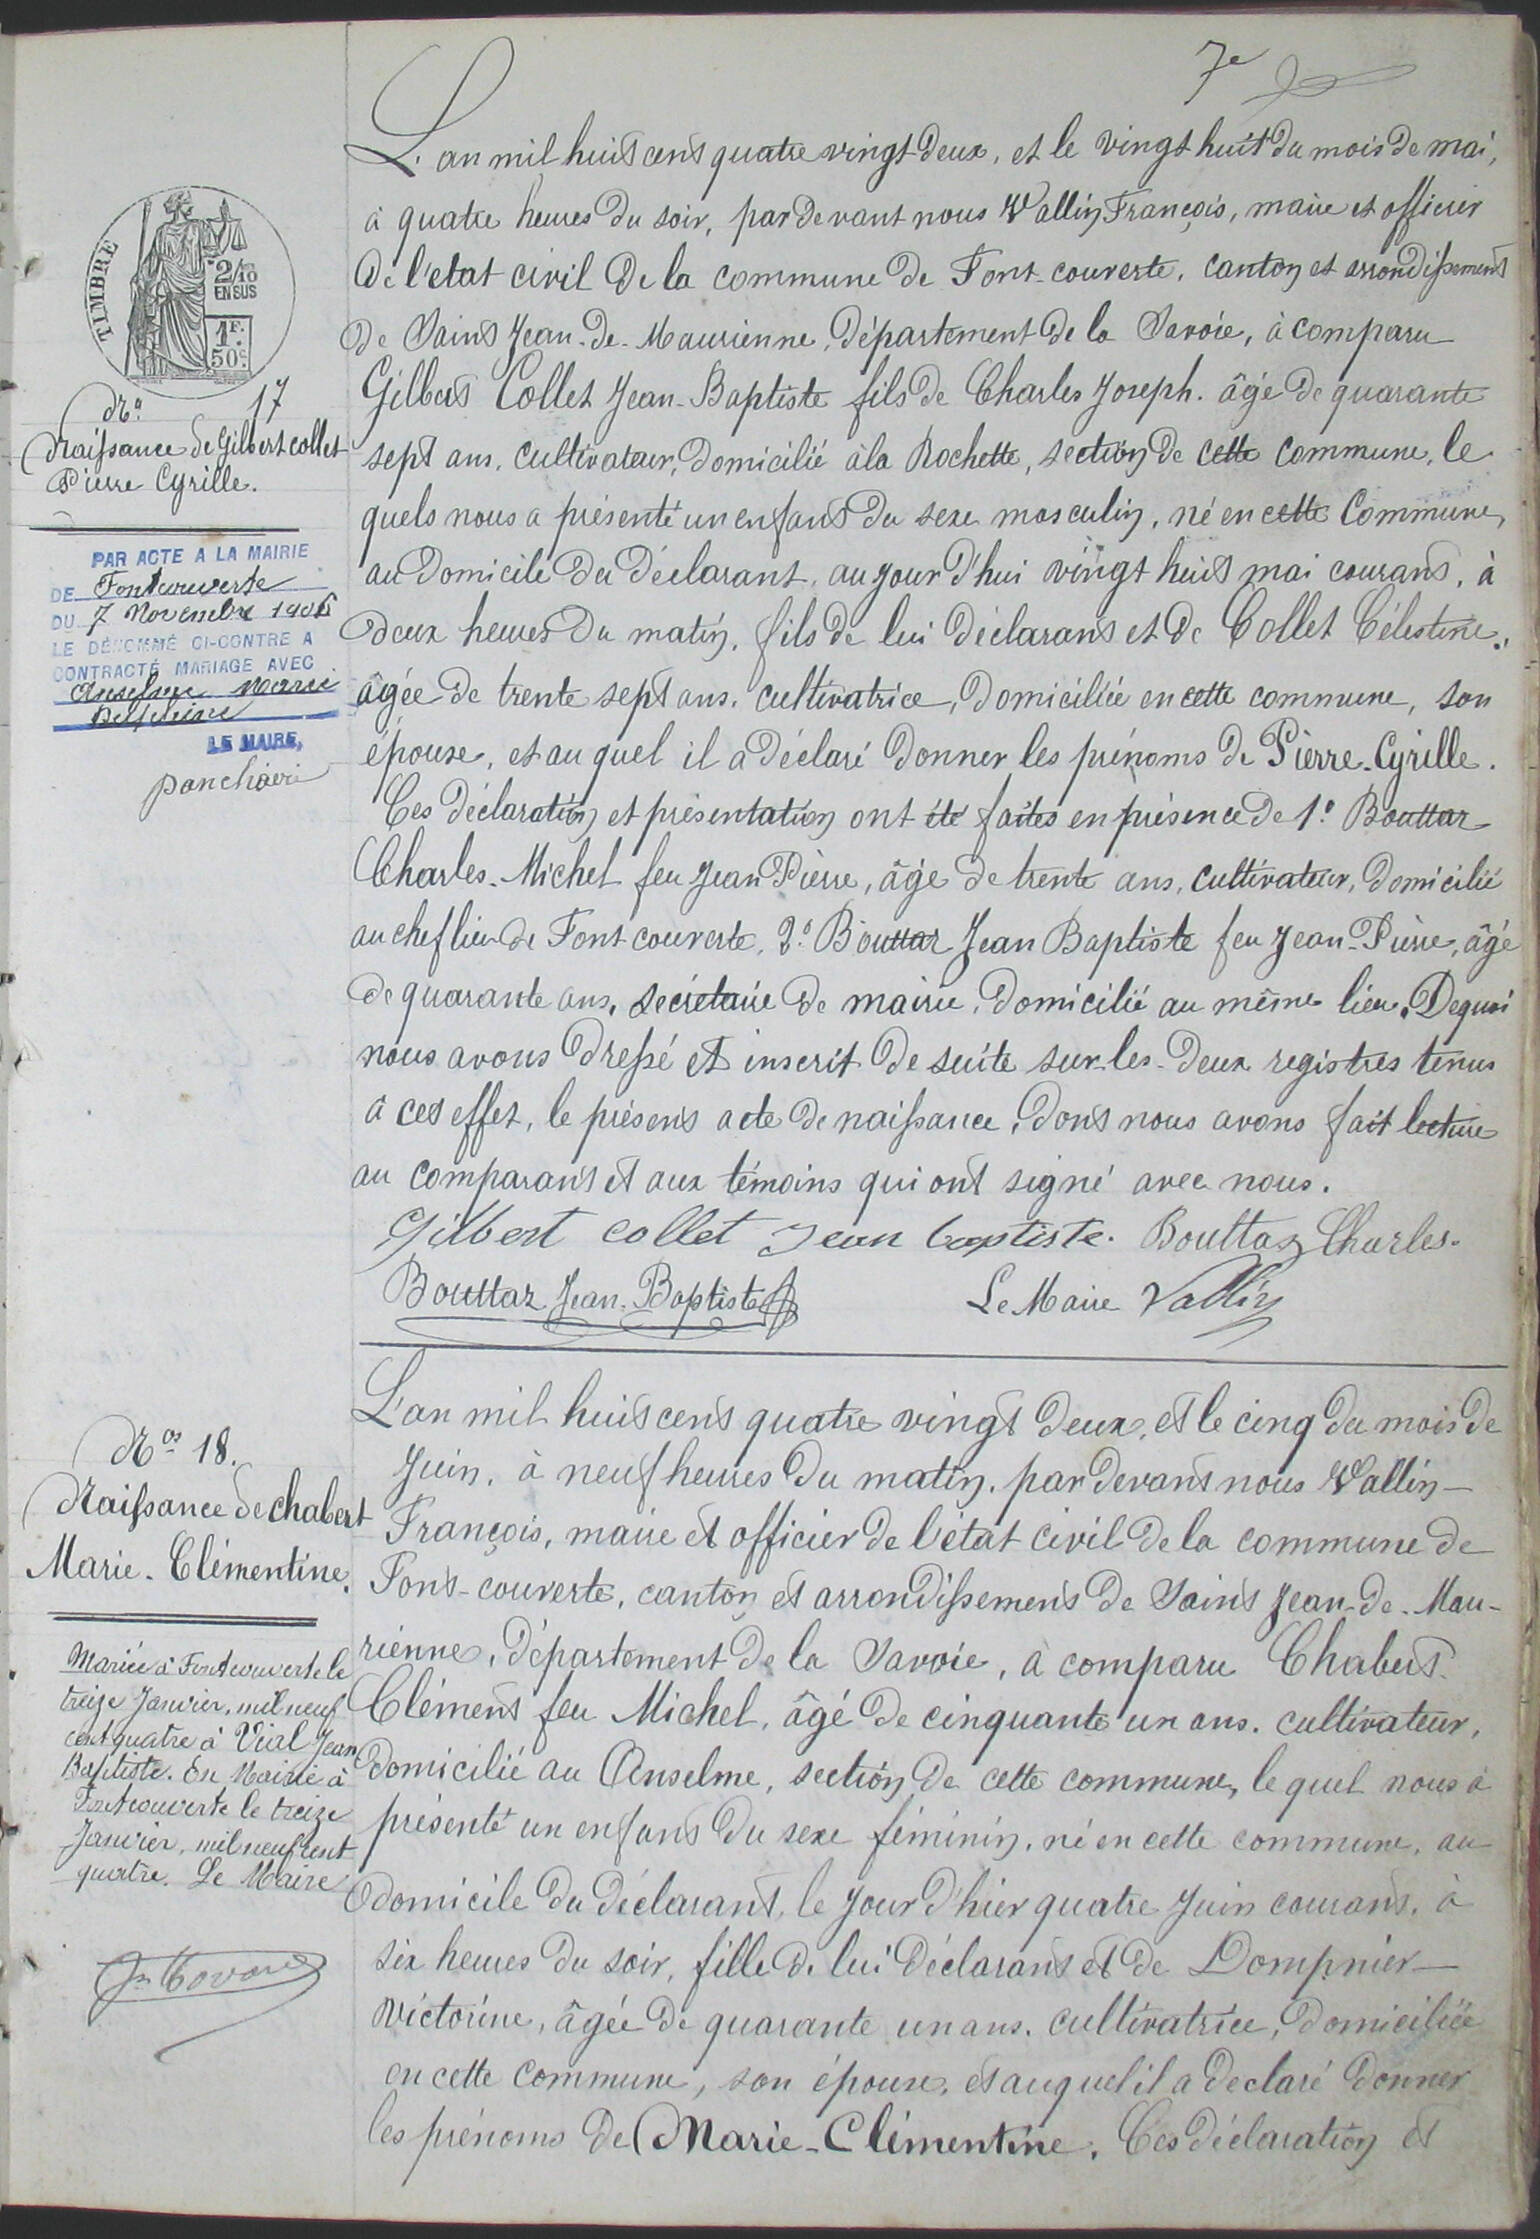 7e
TIMBRE
2/10
EN SUS
1F.
50c.
No. 17
Naissance de Gilbert collet
Pierre Cyrille.
PAR ACTE A LA MAIRIE
DE Fontcouverte
DU 7 Novembre 1906
LE DÉNOMMÉ CI-CONTRE A
CONTRACTÉ MARIAGE AVEC
Anselme Marie
Delphine
LE MAIRE,
L'an mil huit cent quatre vingt deux, et le vingt huit du mois de mai,
à quatre heures du soir, par devant nous Vallin François, maire et officier
de l'etat civil de la commune de Font-couverte, canton et arrondissement
de Saint Jean-de-Maurienne, département de la Savoie, à comparu
Gilbert Collet Jean-Baptiste fils de Charles Joseph. âgé de quarante
sept ans, cultivateur, domicilié à la Rochette, section de cette commune, le
quels nous a présenté un enfant du sexe masculin, né en cette Commune,
au domicile du déclarant, aujourd'hui vingt huit mai courant, à
deux heures du matin, fils de lui déclarant et de Collet Célestine.
âgée de trente sept ans, cultivatrice, domiciliée en cette commune, son
épouse, et au quel il a déclaré donner les prénoms de Pierre-Cyrille.
Ces déclaration et présentation ont été faites en présence de 1o Bouttaz
Charles-Michel feu Jean Pierre, âgé de trente ans, cultivateur, domicilié
au chef lieu de Font couverte, 2o Bouttaz Jean Baptiste feu Jean-Pierre, âgé
de quarante ans, secrétaire de mairie, domicilié au même lieu. De quoi
nous avons dressé et inscrit de suite sur les deux registres tenus
à cet effet, le présent acte de naissance, dont nous avons fait lecture
au comparant et aux témoins qui ont signé avec nous.
Gilbert collet Jean baptiste. Bouttaz Charles.
Bouttaz Jean-Baptiste Le Maire Vallin
Nos 18.
Naissance de chabert
Marie-Clémentine.
Mariée à Fontcouverte le
treize Janvier, mil neuf
cent quatre à Vial Jean
Baptiste. En Mairie à
Fontcouverte le treize
Janvier, mil neuf cent
quatre. Le Maire
L'an mil huit cent quatre vingt deux, et le cinq du mois de
Juin, à neuf heures du matin, par devant nous Vallin
François, maire et officier de l'état civil de la commune de
Font-couverte, canton et arrondissement de Saint Jean-de-Mau-
rienne, département de la Savoie, à comparu Chabert
Clément feu Michel, âgé de cinquante un ans. cultivateur,
domicilié au Anselme, section de cette commune, le quel nous à
présenté un enfant du sexe féminin, né en cette commune, au
domicile du déclarant, le jour d'hier quatre Juin courant, à
six heures du soir, fille de lui déclarant et de Dompnier
Victorine, âgée de quarante un ans. cultivatrice, domiciliée
en cette commune, son épouse, et auquel il a declaré donner
les prénoms de Marie-Clémentine. Ces déclaration et